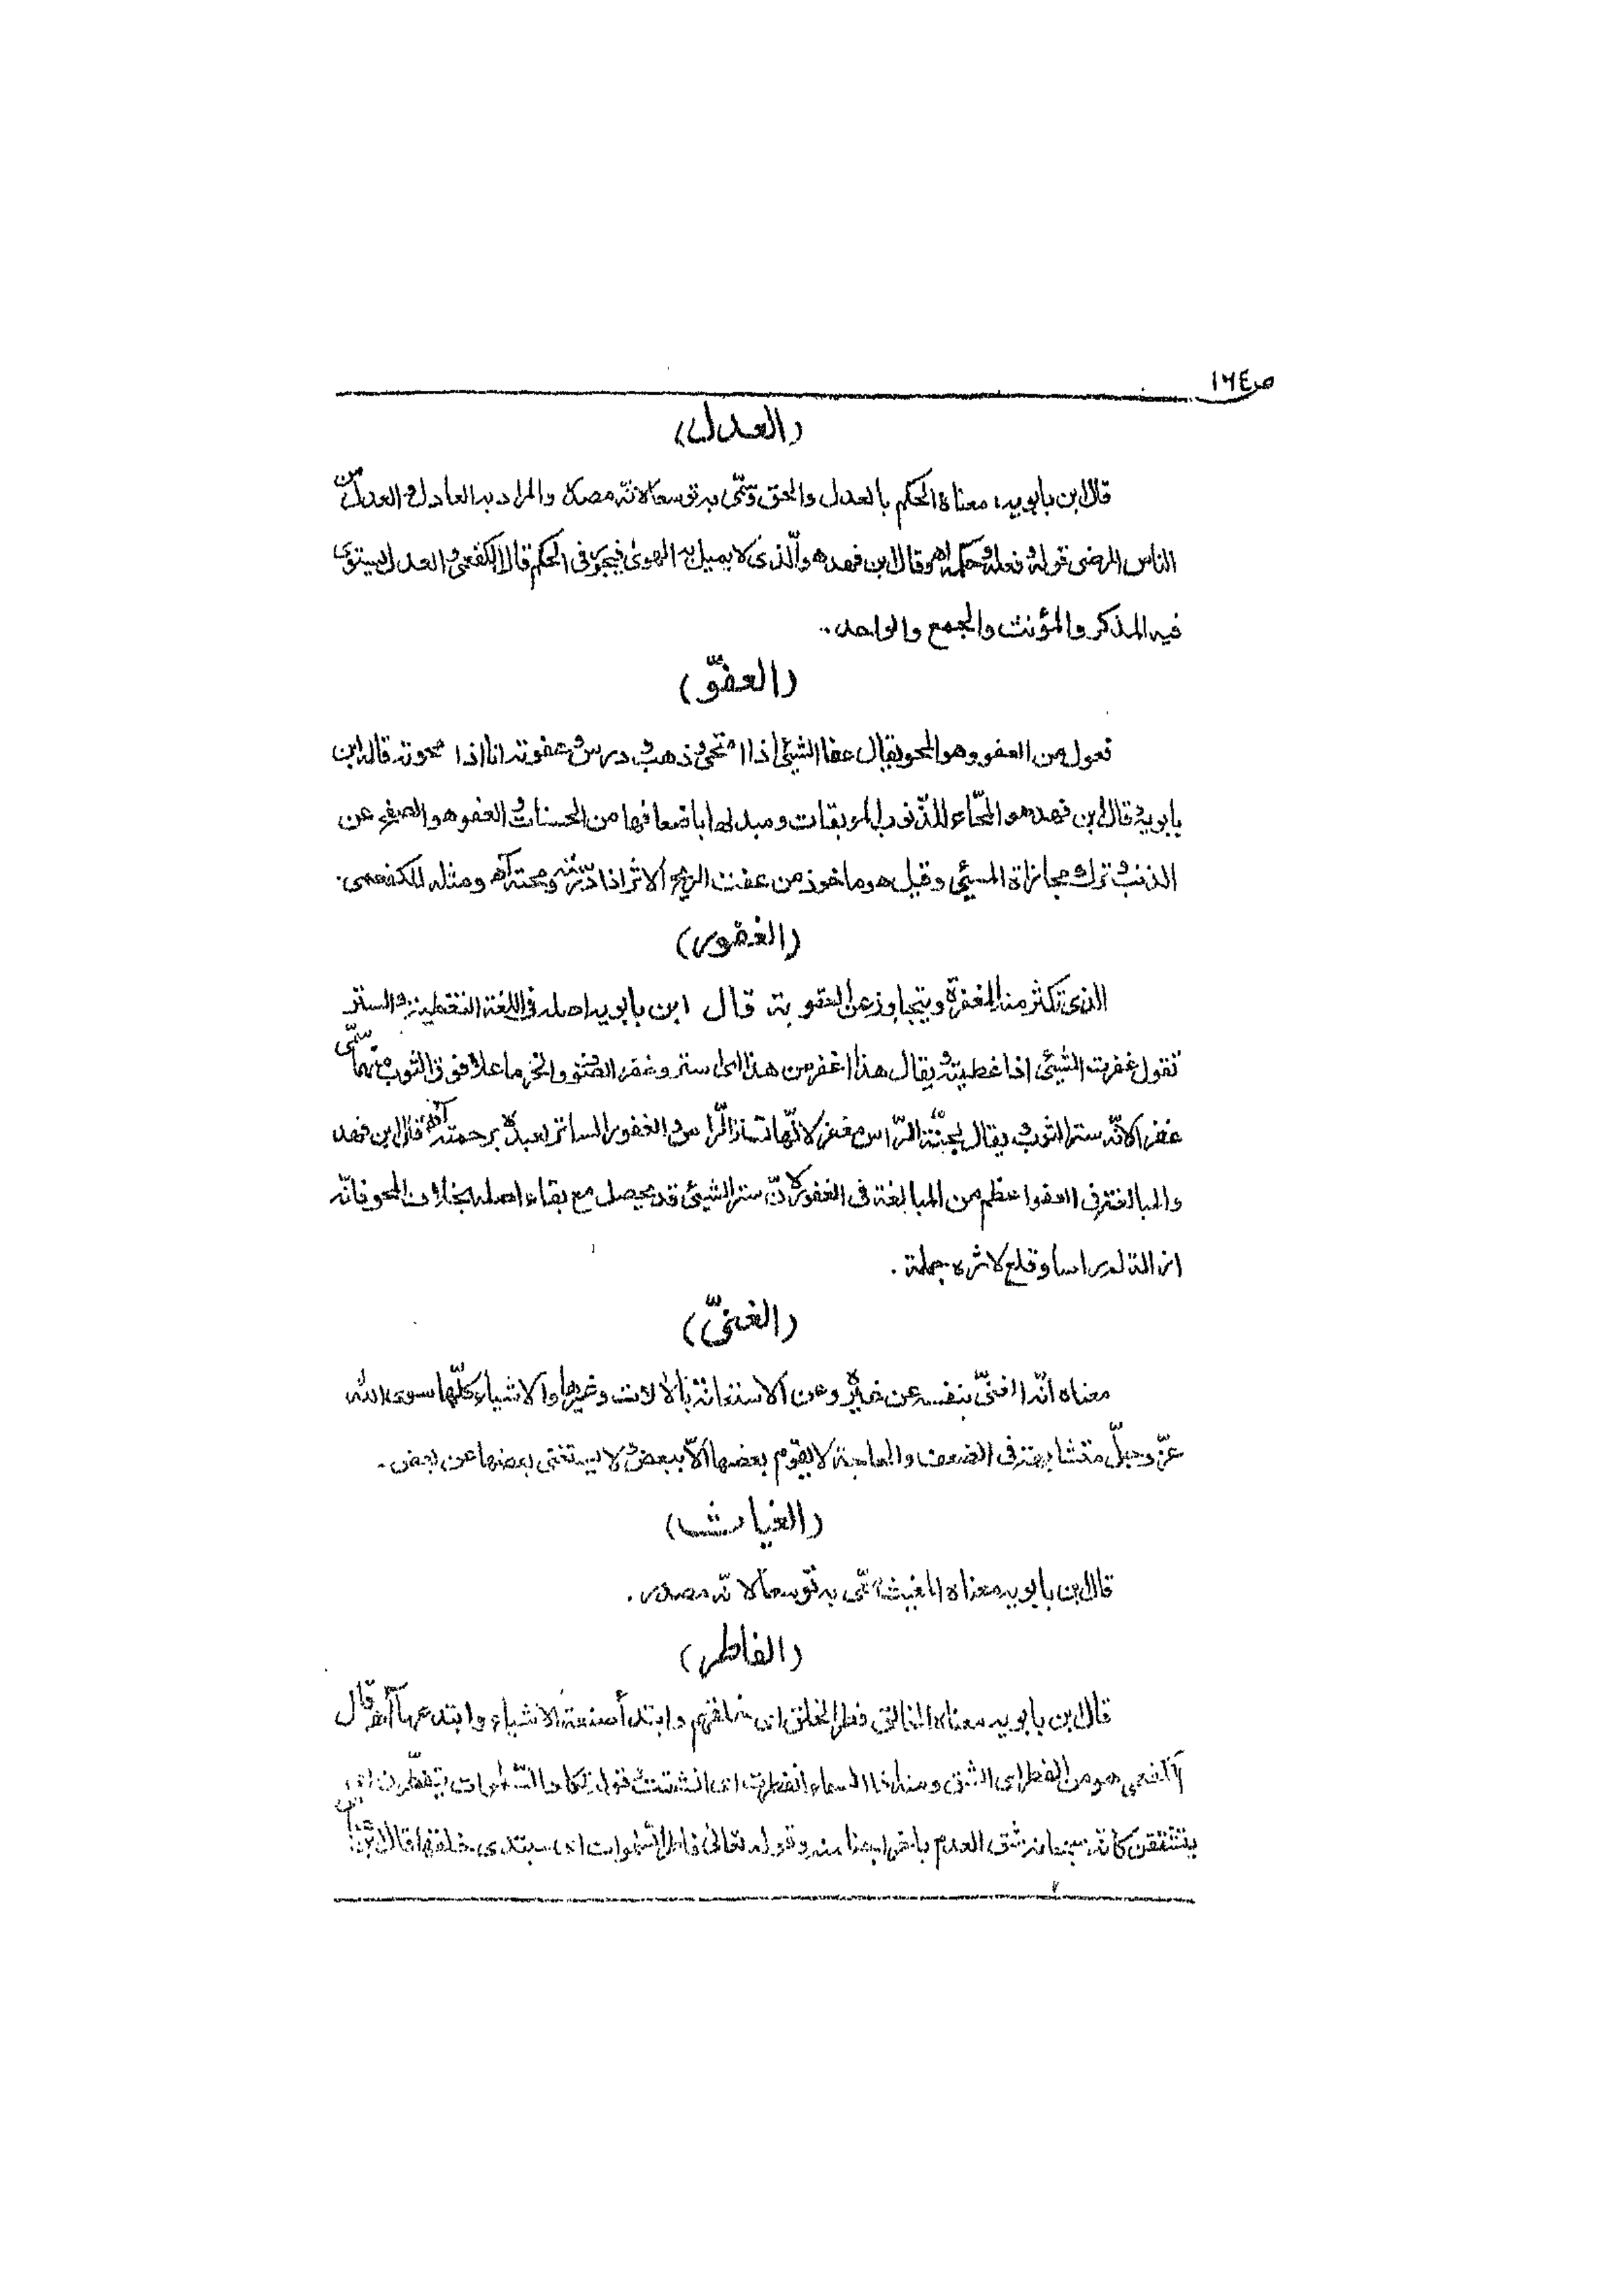 ص١٦٤
(العدل)
قال ابن بابويه، معناه الحكم بالعدل والحق وسمّى به توسعا لانّه مصدر والمراد به العادل والعدل من
الناس المرضى قوله وفعله وحكمه اهـ وقال ابن فهد هو الّذى لا يميل به الهوى فيجور فى الحكم قال الكفعمى والعدل يستوى
فيه المذكر والمؤنث والجمع والواحد.
(العفوّ)
فعول من العفو وهو المحو يقال عفا الشيئ اذا امتحى وذهب ودرس وعفوته انا اذا محوته قاله ابن
بابويه وقال ابن فهد هو المحّاء للذّنوب الموبقات ومبدلها باضعافها من الحسنات والعفو هو الصفح عن
الذنب وترك مجازاة المسيئ وقيل هو ماخوذ من عفت الريح الاثر اذا درسته ومحته اهـ ومثله للكفعمى.
(الغفور)
الذى تكثر منه المغفرة ويتجاوز عن العقوبة قال ابن بابويه اصله فى اللغة التغطية والستر
تقول غفرت الشيئ اذا غطيته ويقال هذا اغفر من هذا اى استر وغفر الخز والخز ما علا فوق الثوب منهما سمّى
غفرا لانّه ستر الثوب ويقال لجنّة الرّاس مغفر لانّها تستر الرّاس والغفور الساتر لعبده برحمته اهـ قال ابن فهد
والمبالغة فى العفو اعظم من المبالغة فى الغفور لانّ ستر الشيئ قد يحصل مع بقاء اصله بخلاف المحو فانّه
ازالة له راسا وقلع لاثره جملة.
(الغنىّ)
معناه انّه الغنىّ بنفسه عن غيره وعن الاستعانة بالالات وغيرها والاشياء كلّها سوى الله
عزّ وجلّ متشابهة فى الضعف والحاجة لا يقوم بعضها الّا ببعض ولا يستغنى بعضها عن بعض.
(الغياث)
قال ابن بابويه معناه المغيث سمّى به توسعا لانّه مصدر.
(الفاطر)
قال ابن بابويه معناه الخالق فطر الخلق اى خلقهم وابتدأ صنعة الاشياء وابتدعها اهـ قال
الكفعمى هو من الفطر اى الشق ومنه اذا السماء انفطرت اى انشقت وقوله تكاد السّماوات يتفطّرن اى
يتشققن كانّه سبحانه شق العدم باخراجنا منه وقوله تعالى فاطر السّموات اى مبتدى خلقها قال ابن عباس